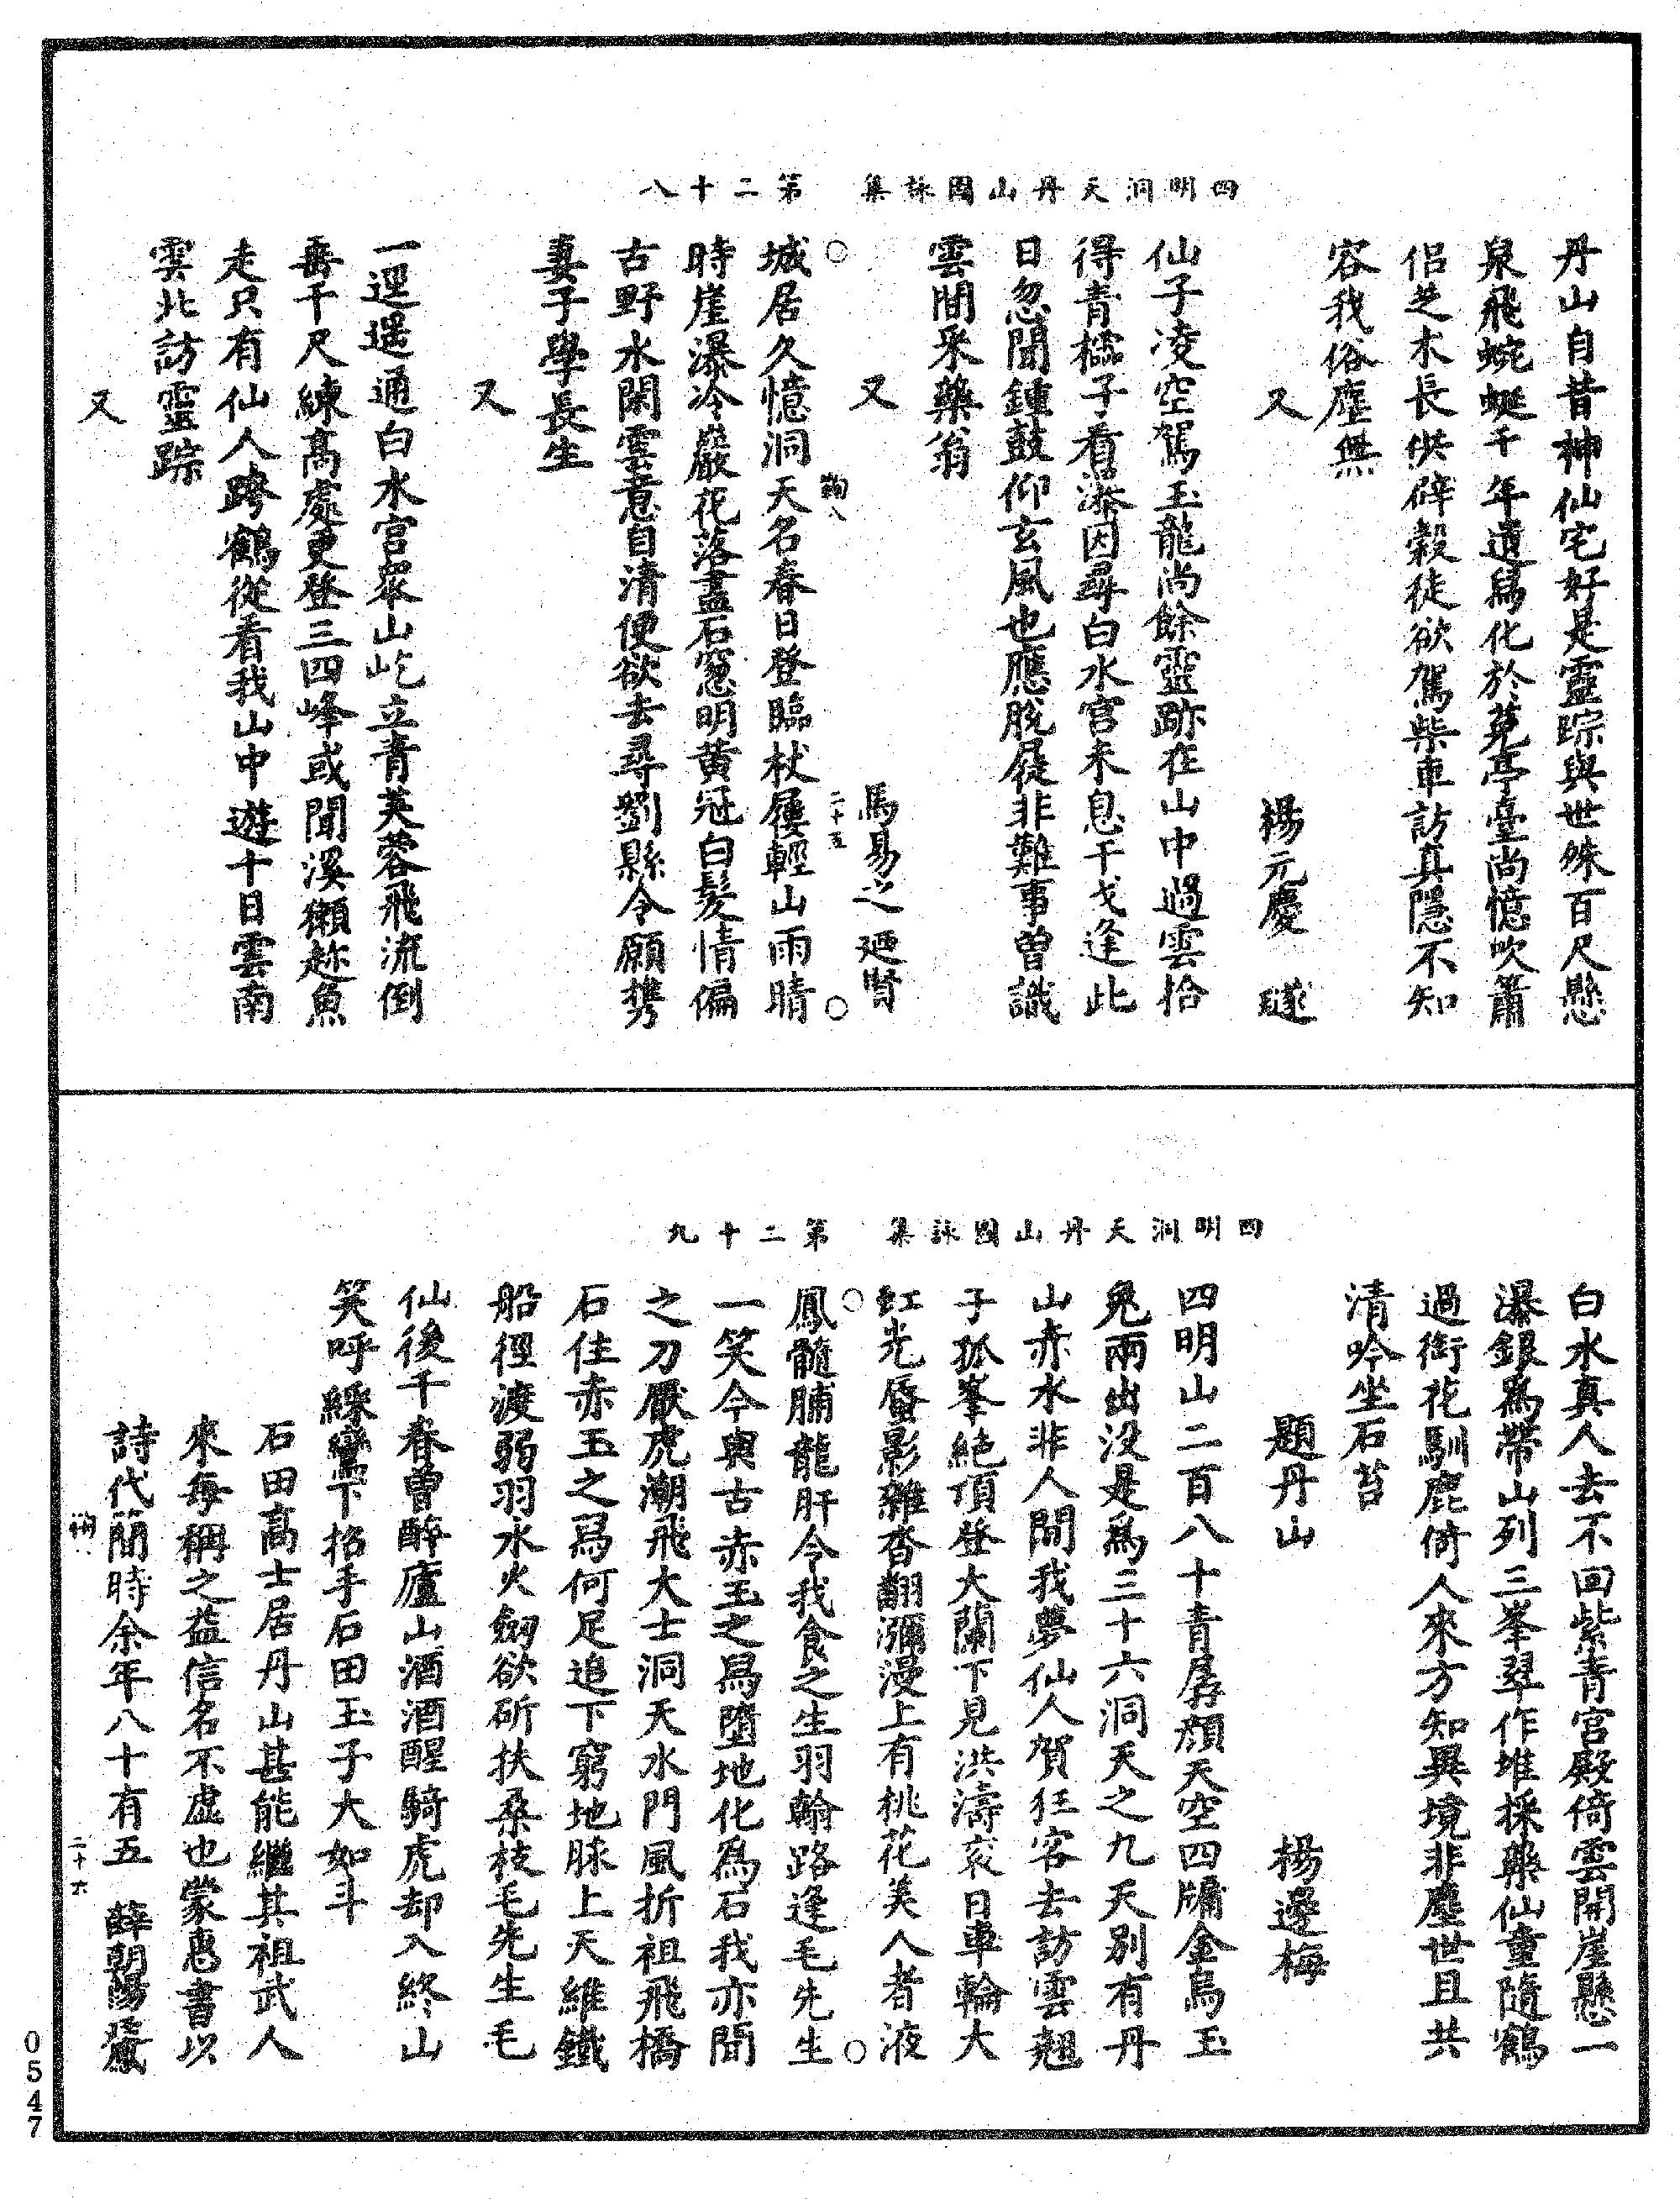 四明洞天丹山圖詠集　第二十八
丹山自昔神仙宅好是靈踪與世殊百尺懸
泉飛蜿蜒千年遺舄化於菟亭臺尚憶吹簫
侣芝木長供辟榖徒欲駕柴車訪真隱不知
容我俗塵無
又　楊元慶　璲
仙子凌空駕玉龍尚餘靈跡在山中過雲拾
得青櫺子看瀑因尋白水宫未息干戈逢此
日忽聞鍾鼓仰玄風也應脫屣非難事曾識
雲間采藥翁
又　馬易之廼賢
鞠八　二十五
城居久憶洞天名春日登臨杖屨輕山雨晴
時崖瀑冷巖花落盡石窓明黄冠白髮情偏
古野水閑雲意自清便欲去尋劉縣令願携
妻子學長生
又
一逕遥通白水宫衆山屹立青芙蓉飛流倒
垂千尺練高處更登三四峰或聞溪獺趂魚
走只有仙人跨鶴從看我山中遊十日雲南
雲北訪靈踪
又
四明洞天丹山圖詠集　第二十九
白水真人去不回紫青宫殿倚雲開崖懸一
瀑銀為帶山列三峯翠作堆採藥仙童隨鶴
過銜花馴鹿倚人來方知異境非塵世且共
清吟坐石苔
題丹山　楊邊梅
四明山二百八十青孱顔天空四牖金烏玉
兔兩出没是為三十六洞天之九天别有丹
山赤水非人間我夢仙人賀狂客去訪雲翹
子孤峯絶頂登大蘭下見洪濤亥日車輪大
虹光蜃影雜沓翻瀰漫上有桃花美人者液
鳳髓脯龍肝令我食之生羽翰路逢毛先生
一笑今與古赤玉之舄墮地化為石我亦聞
之刀厭虎潮飛大士洞天水門風折祖飛橋
石佳赤玉之舄何足追下窮地脉上天維鐵
船徑渡弱羽水火劒欲斫扶桑枝毛先生毛
仙後千春曾醉廬山酒酒醒騎虎却入終山
笑呼綵鸞下招手石田玉子大如斗
石田高士居丹山甚能繼其祖武人
來每稱之益信名不虚也蒙惠書以
詩代簡時余年八十有五　薛朝陽
鞠　二十六
0547